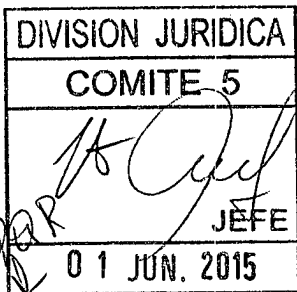 DIVISION JURIDICA
COMITE 5
JEFE
01 JUN. 2015